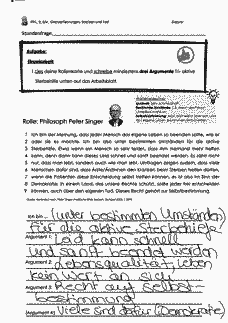 Stundenfrage:
Aufgabe:
Einzelarbeit
1. Lies deine Rollenkarte und schreibe mindestens drei Argumente für aktive
Sterbehilfe unten auf das Arbeitsblatt.
Rolle: Philosoph Peter Singer
1 Ich bin der Meinung, dass jeder Mensch das eigene Leben so beenden sollte, wie er
2 oder sie es möchte. Ich bin also unter bestimmten Umständen für die aktive
3 Sterbehilfe. Etwa wenn ein Mensch so sehr leidet, dass ihm niemand mehr helfen
4 kann, denn dann kann dieses Leid schnell und sanft beendet werden. Es zählt nicht
5 nur, dass man lebt, sondern auch wie man lebt. Umfragen zeigen zudem, dass viele
6 Menschen dafür sind, dass Ärzte/Ärztinnen den Kranken beim Sterben helfen dürfen,
7 wenn die Patienten diese Entscheidung selbst treffen können. Es ist also im Sinn der
8 Demokratie. In einem Land, das unsere Rechte schützt, sollte jeder frei entscheiden
9 können, auch über den eigenen Tod. Dieses Recht gehört zur Selbstbestimmung.
Ich bin... (unter bestimmten Umständen)
für die aktive Sterbehilfe
Argument 1: Leid kann schnell
und sanft beendet werden
Argument 2: Lebensqualität, Leben
kein Wert an sich
Argument 3: Recht auf Selbst-
bestimmung
(Argument 4): Viele sind dafür (Demokratie)